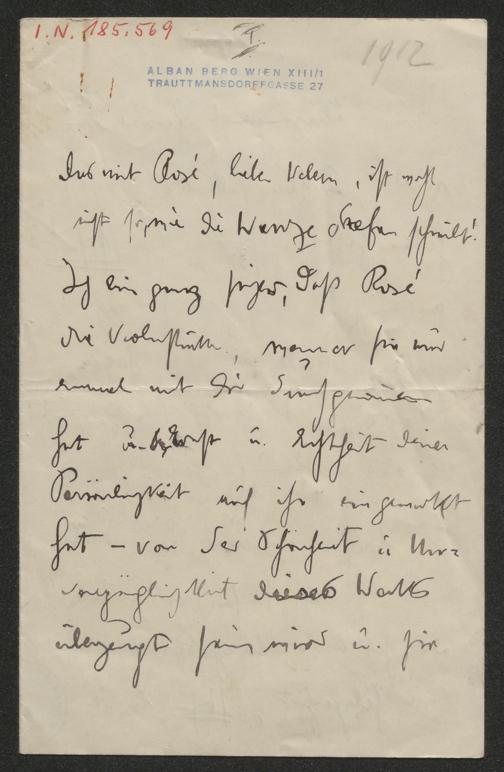 I.N. 185.569
I.
1912
ALBAN BERG WIEN XIII/1
TRAUTTMANSDORFFGASSE 27
Das mit Rosé, lieber Webern, ist wohl
nicht so, wie die Wanze Stefan schreibt!
Ich bin ganz sicher, daß Rosé
die Violinstücke, wenn er sie nur
einmal mit Dir
hat u. u. Echtheit Deiner
Persönlichkeit auf ihn eingewirkt
hat – von der Schönheit u. Unver=
gänglichkeit dieses Werks
überzeugt sein wird u. sie